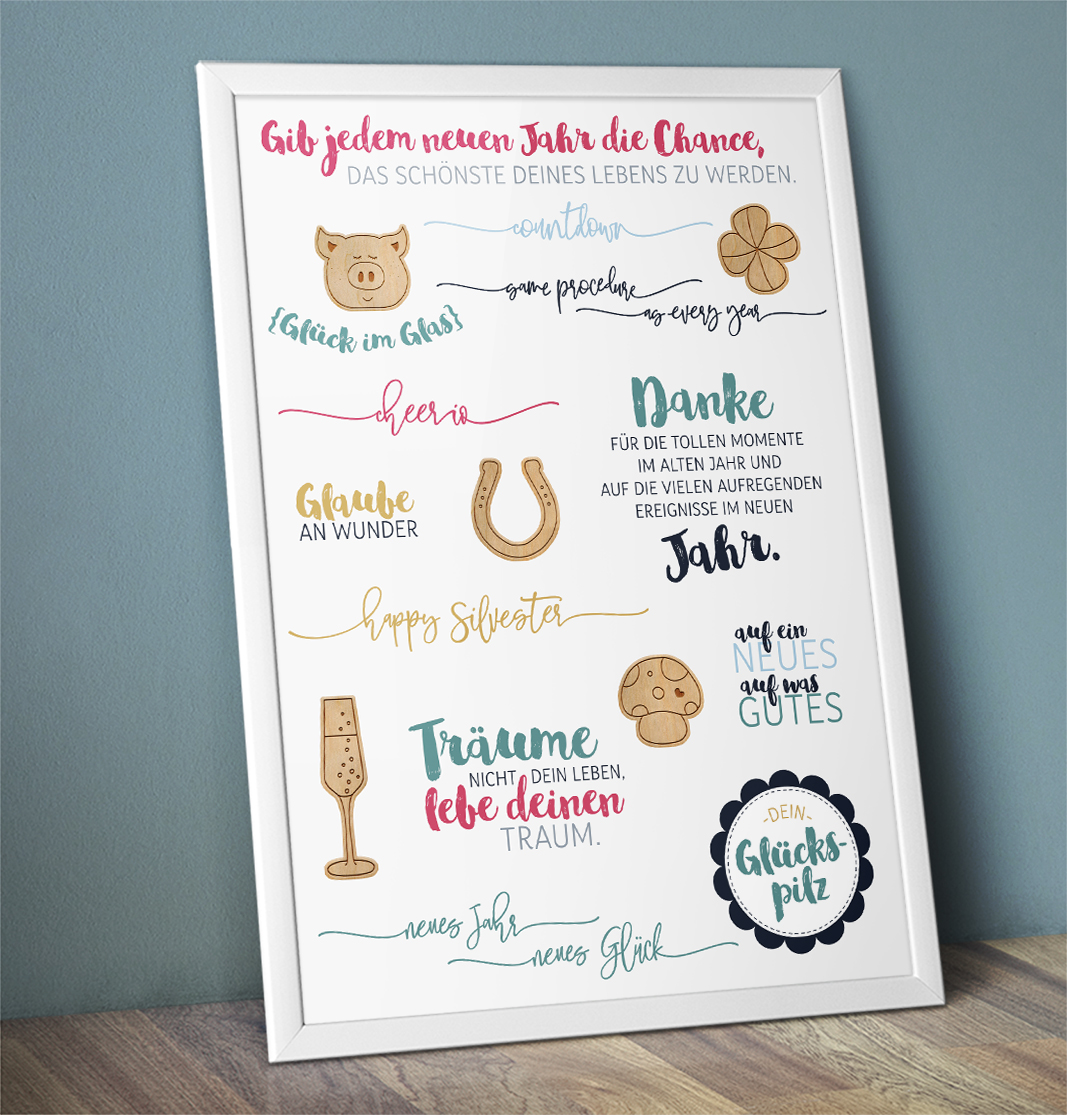 Gib jedem neuen Jahr die Chance,
DAS SCHÖNSTE DEINES LEBENS ZU WERDEN.
countdown
game procedure
as every year
{Glück im Glas}
cheerio
Danke
FÜR DIE TOLLEN MOMENTE
IM ALTEN JAHR UND
AUF DIE VIELEN AUFREGENDEN
EREIGNISSE IM NEUEN
Jahr.
Glaube
AN WUNDER
happy Silvester
auf ein
NEUES
auf was
GUTES
Träume
NICHT DEIN LEBEN,
lebe deinen
TRAUM.
-DEIN-
Glücks-
pilz
neues Jahr
neues Glück